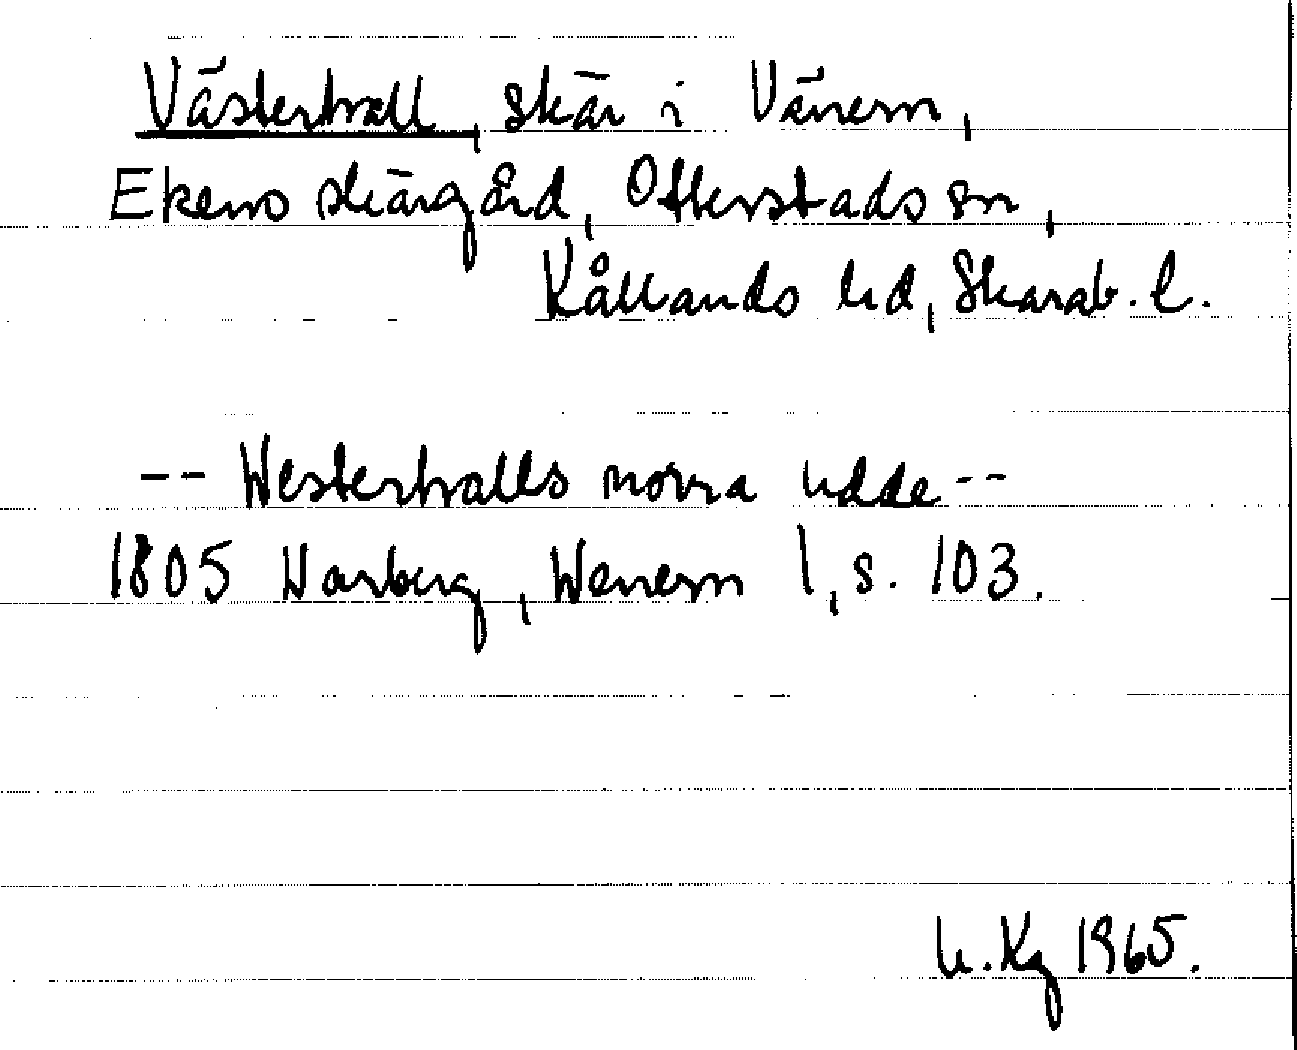 Västerhall, skär i Vänern,
Ekens skärgård, Otterstads sn,
Kållands hd, Skarab. l.
-- Westerhalls norra udde --
1805 Warberg, Wenern 1, s. 103.
U. Kg 1965.